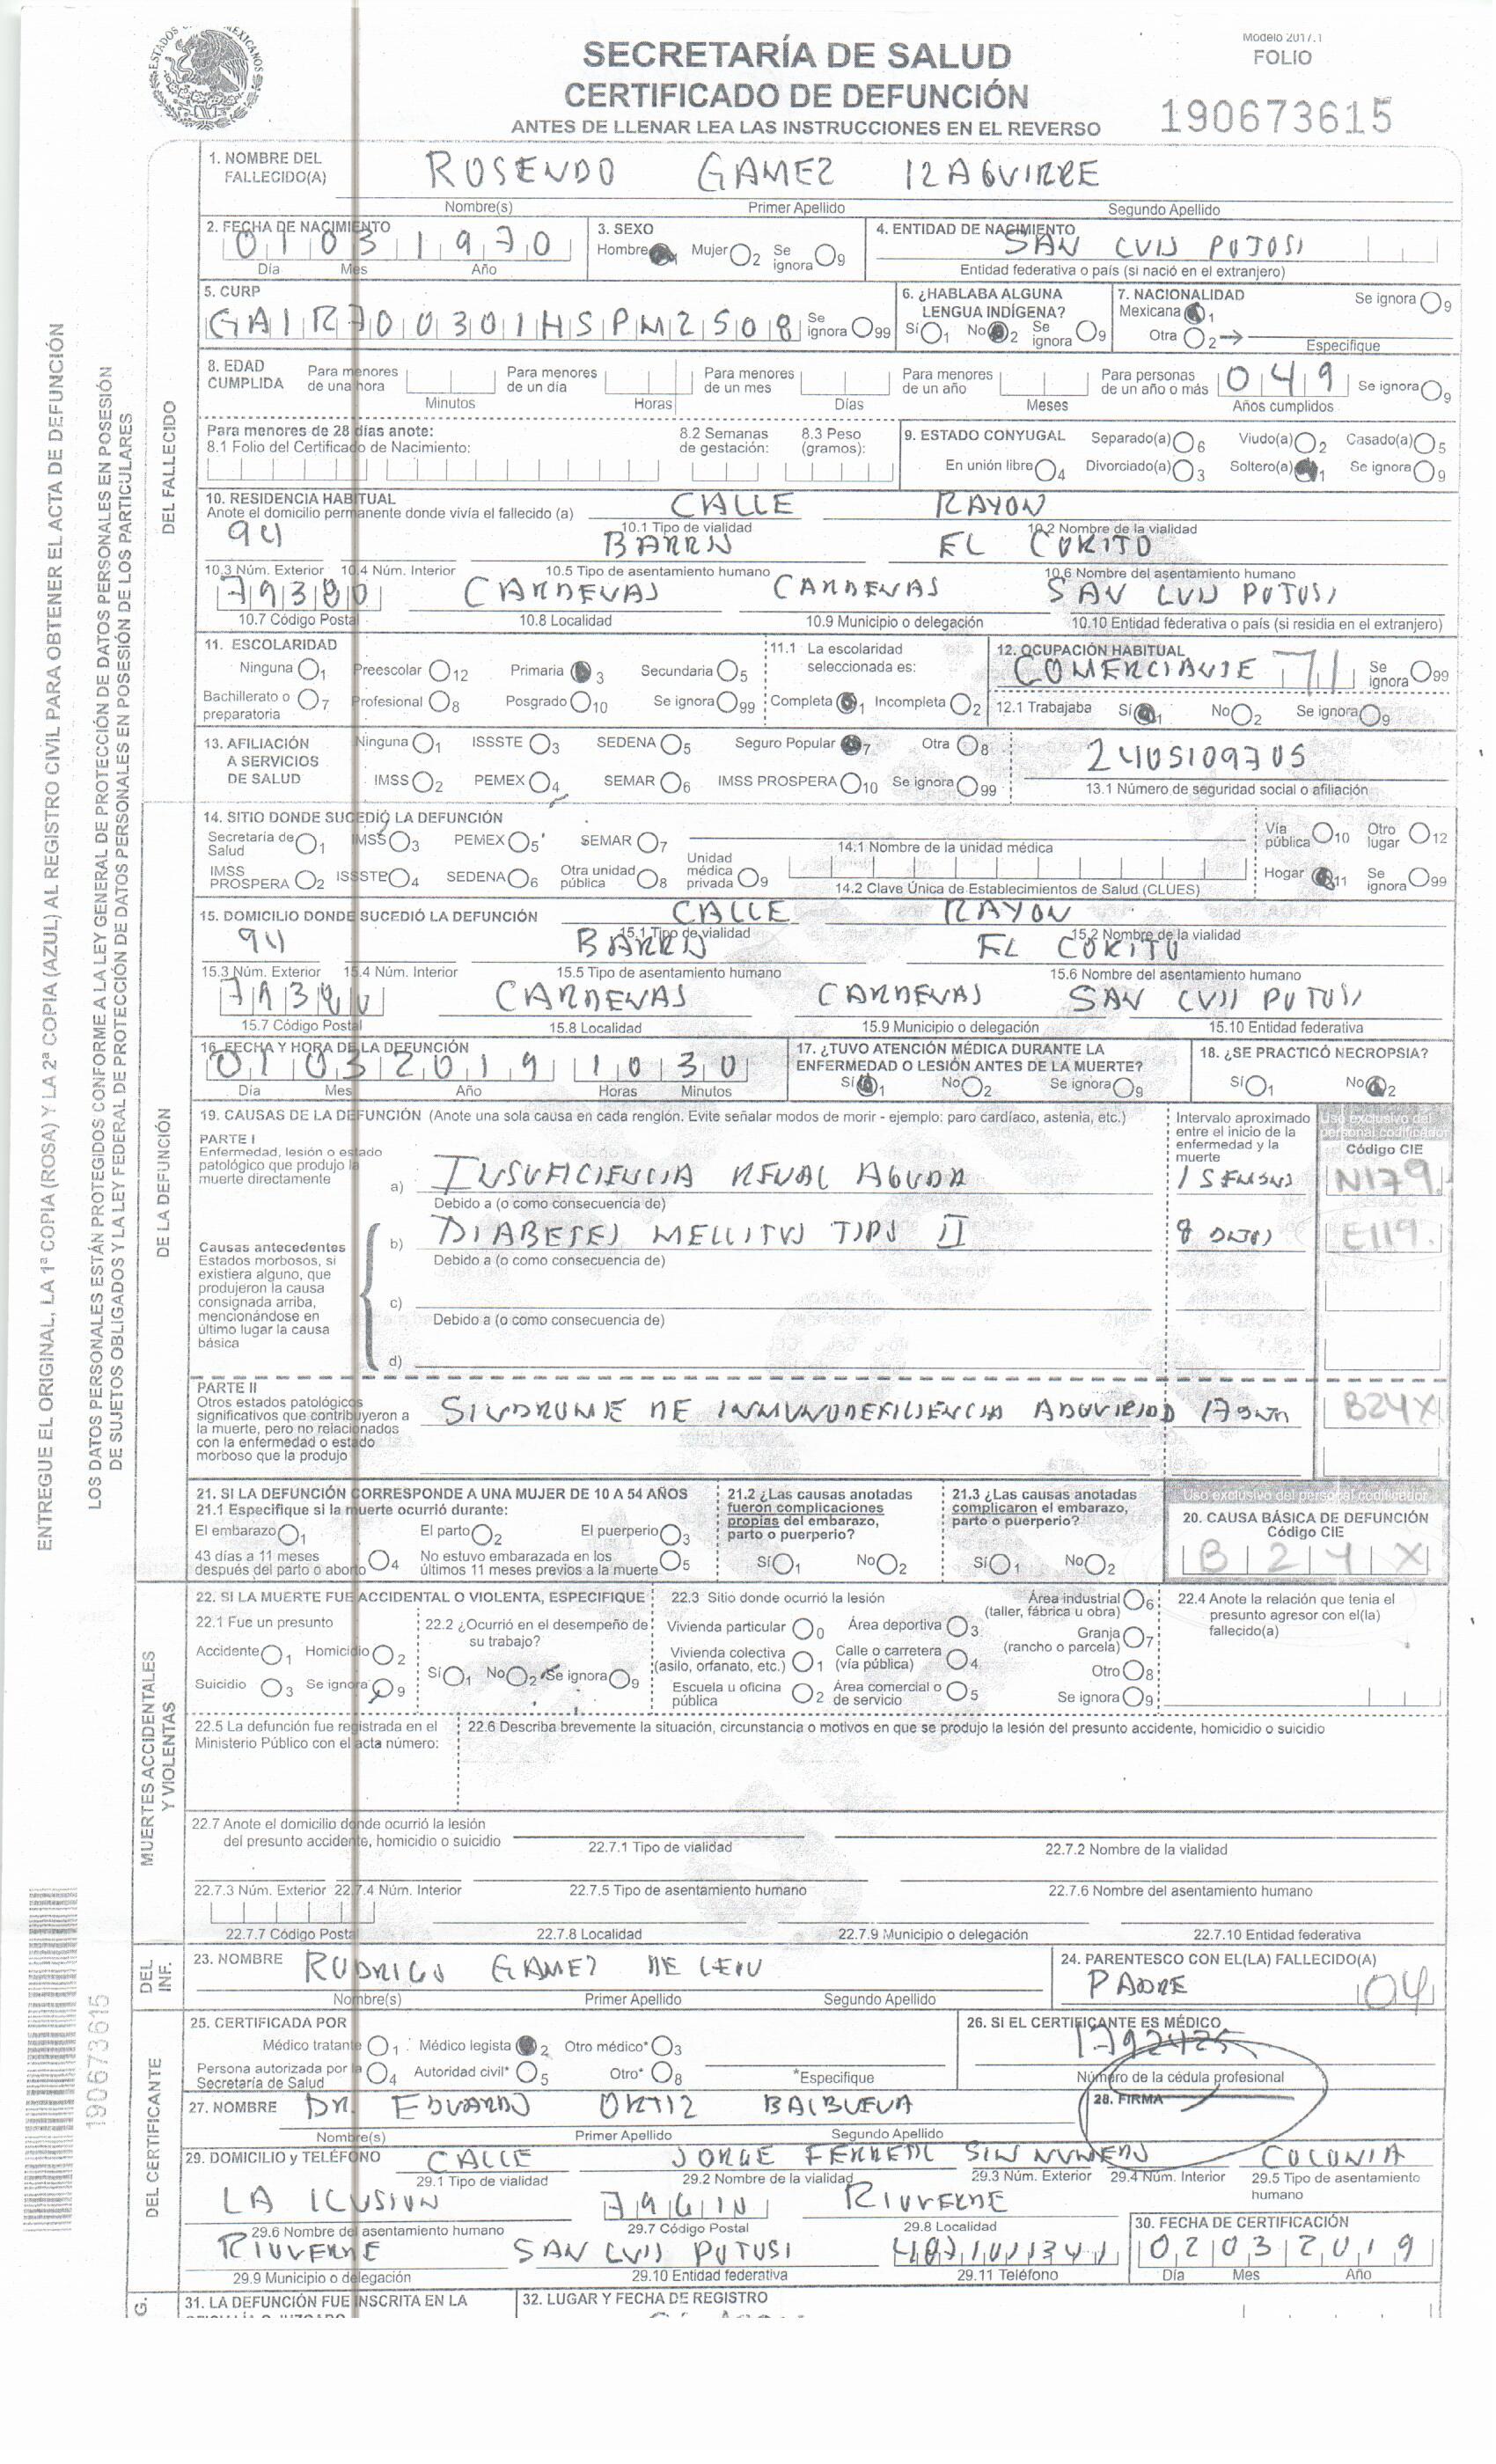 Modelo 2017.1
SECRETARÍA DE SALUD
FOLIO
CERTIFICADO DE DEFUNCIÓN
190673615
ANTES DE LLENAR LEA LAS INSTRUCCIONES EN EL REVERSO
ENTREGUE EL ORIGINAL, LA 1ª COPIA (ROSA) Y LA 2ª COPIA (AZUL) AL REGISTRO CIVIL PARA OBTENER EL ACTA DE DEFUNCIÓN
LOS DATOS PERSONALES ESTÁN PROTEGIDOS CONFORME A LA LEY GENERAL DE PROTECCIÓN DE DATOS PERSONALES EN POSESIÓN
DE SUJETOS OBLIGADOS Y LA LEY FEDERAL DE PROTECCIÓN DE DATOS PERSONALES EN POSESIÓN DE LOS PARTICULARES
DEL FALLECIDO
1. NOMBRE DEL FALLECIDO(A) ROSENDO GAMEZ IZAGUIRRE
Nombre(s) Primer Apellido Segundo Apellido
2. FECHA DE NACIMIENTO 01031970
Día Mes Año
3. SEXO
Hombre 1 Mujer 2 Se ignora 9
4. ENTIDAD DE NACIMIENTO SAN LUIS POTOSI
Entidad federativa o país (si nació en el extranjero)
5. CURP
Se ignora 99
6. ¿HABLABA ALGUNA LENGUA INDÍGENA?
Sí 1 No 2 Se ignora 9
7. NACIONALIDAD Se ignora 9
Mexicana 1
Otra 2 Especifique
8. EDAD CUMPLIDA Para menores de una hora Minutos Para menores de un día Horas Para menores de un mes Días Para menores de un año Meses Para personas de un año o más 049 Años cumplidos Se ignora 9
Para menores de 28 días anote:
8.1 Folio del Certificado de Nacimiento: 8.2 Semanas de gestación: 8.3 Peso (gramos):
9. ESTADO CONYUGAL Separado(a) 6 Viudo(a) 2 Casado(a) 5
En unión libre 4 Divorciado(a) 3 Soltero(a) 1 Se ignora 9
10. RESIDENCIA HABITUAL
Anote el domicilio permanente donde vivía el fallecido (a) CALLE RAYON
10.1 Tipo de vialidad 10.2 Nombre de la vialidad
94 BARRIO EL
10.3 Núm. Exterior 10.4 Núm. Interior 10.5 Tipo de asentamiento humano 10.6 Nombre del asentamiento humano
79380 CARDENAS CARDENAS SAN LUIS POTOSI
10.7 Código Postal 10.8 Localidad 10.9 Municipio o delegación 10.10 Entidad federativa o país (si residia en el extranjero)
11. ESCOLARIDAD
Ninguna 1 Preescolar 12 Primaria 3 Secundaria 5
Bachillerato o preparatoria 7 Profesional 8 Posgrado 10 Se ignora 99
11.1 La escolaridad seleccionada es:
Completa 1 Incompleta 2
12. OCUPACIÓN HABITUAL
COMERCIANTE 71 Se ignora 99
12.1 Trabajaba Sí 1 No 2 Se ignora 9
13. AFILIACIÓN A SERVICIOS DE SALUD
Ninguna 1 ISSSTE 3 SEDENA 5 Seguro Popular 7 Otra 8
IMSS 2 PEMEX 4 SEMAR 6 IMSS PROSPERA 10 Se ignora 99
2405109705
13.1 Número de seguridad social o afiliación
DE LA DEFUNCIÓN
14. SITIO DONDE SUCEDIÓ LA DEFUNCIÓN
Secretaría de Salud 1 IMSS 3 PEMEX 5 SEMAR 7
14.1 Nombre de la unidad médica
Vía pública 10 Otro lugar 12
IMSS PROSPERA 2 ISSSTE 4 SEDENA 6 Otra unidad pública 8 Unidad médica privada 9
14.2 Clave Única de Establecimientos de Salud (CLUES)
Hogar 11 Se ignora 99
15. DOMICILIO DONDE SUCEDIÓ LA DEFUNCIÓN CALLE RAYON
15.1 Tipo de vialidad 15.2 Nombre de la vialidad
94 BARRIO EL
15.3 Núm. Exterior 15.4 Núm. Interior 15.5 Tipo de asentamiento humano 15.6 Nombre del asentamiento humano
79380 CARDENAS CARDENAS SAN LUIS POTOSI
15.7 Código Postal 15.8 Localidad 15.9 Municipio o delegación 15.10 Entidad federativa
16. FECHA Y HORA DE LA DEFUNCIÓN
01032019 1030
Día Mes Año Horas Minutos
17. ¿TUVO ATENCIÓN MÉDICA DURANTE LA ENFERMEDAD O LESIÓN ANTES DE LA MUERTE?
Sí 1 No 2 Se ignora 9
18. ¿SE PRACTICÓ NECROPSIA?
Sí 1 No 2
19. CAUSAS DE LA DEFUNCIÓN (Anote una sola causa en cada renglón. Evite señalar modos de morir - ejemplo: paro cardíaco, astenia, etc.)
Intervalo aproximado entre el inicio de la enfermedad y la muerte
Uso exclusivo del personal codificador
Código CIE
PARTE I
Enfermedad, lesión o estado patológico que produjo la muerte directamente
a) INSUFICIENCIA RENAL AGUDA 1 N179
Debido a (o como consecuencia de)
Causas antecedentes
Estados morbosos, si existiera alguno, que produjeron la causa consignada arriba, mencionándose en último lugar la causa básica
b) DIABETES MELLITUS TIPO II 8 E119
Debido a (o como consecuencia de)
c)
Debido a (o como consecuencia de)
d)
PARTE II
Otros estados patológicos significativos que contribuyeron a la muerte, pero no relacionados con la enfermedad o estado morboso que la produjo
SINDROME DE INMUNODEFICIENCIA ADQUIRIDA B24X
21. SI LA DEFUNCIÓN CORRESPONDE A UNA MUJER DE 10 A 54 AÑOS
21.1 Especifique si la muerte ocurrió durante:
El embarazo 1 El parto 2 El puerperio 3
43 días a 11 meses después del parto o aborto 4 No estuvo embarazada en los últimos 11 meses previos a la muerte 5
21.2 ¿Las causas anotadas fueron complicaciones propias del embarazo, parto o puerperio?
Sí 1 No 2
21.3 ¿Las causas anotadas complicaron el embarazo, parto o puerperio?
Sí 1 No 2
Uso exclusivo del personal codificador
20. CAUSA BÁSICA DE DEFUNCIÓN
Código CIE
B24X
MUERTES ACCIDENTALES Y VIOLENTAS
22. SI LA MUERTE FUE ACCIDENTAL O VIOLENTA, ESPECIFIQUE
22.1 Fue un presunto
Accidente 1 Homicidio 2
Suicidio 3 Se ignora 9
22.2 ¿Ocurrió en el desempeño de su trabajo?
Sí 1 No 2 Se ignora 9
22.3 Sitio donde ocurrió la lesión
Vivienda particular 0 Área deportiva 3 Área industrial (taller, fábrica u obra) 6
Vivienda colectiva (asilo, orfanato, etc.) 1 Calle o carretera (vía pública) 4 Granja (rancho o parcela) 7
Escuela u oficina pública 2 Área comercial o de servicio 5 Otro 8
Se ignora 9
22.4 Anote la relación que tenia el presunto agresor con el(la) fallecido(a)
22.5 La defunción fue registrada en el Ministerio Público con el acta número:
22.6 Describa brevemente la situación, circunstancia o motivos en que se produjo la lesión del presunto accidente, homicidio o suicidio
22.7 Anote el domicilio donde ocurrió la lesión del presunto accidente, homicidio o suicidio
22.7.1 Tipo de vialidad 22.7.2 Nombre de la vialidad
22.7.3 Núm. Exterior 22.7.4 Núm. Interior 22.7.5 Tipo de asentamiento humano 22.7.6 Nombre del asentamiento humano
22.7.7 Código Postal 22.7.8 Localidad 22.7.9 Municipio o delegación 22.7.10 Entidad federativa
DEL INF.
23. NOMBRE RODRIGO GAMEZ DE LEON
Nombre(s) Primer Apellido Segundo Apellido
24. PARENTESCO CON EL(LA) FALLECIDO(A)
PADRE 04
190673615
DEL CERTIFICANTE
25. CERTIFICADA POR
Médico tratante 1 Médico legista 2 Otro médico* 3
Persona autorizada por la Secretaría de Salud 4 Autoridad civil* 5 Otro* 8 *Especifique
26. SI EL CERTIFICANTE ES MÉDICO
Número de la cédula profesional
27. NOMBRE DR. EDUARDO ORTIZ BALBUENA
Nombre(s) Primer Apellido Segundo Apellido
28. FIRMA
29. DOMICILIO y TELÉFONO CALLE JORGE FERRETIZ SIN NUMERO COLONIA
29.1 Tipo de vialidad 29.2 Nombre de la vialidad 29.3 Núm. Exterior 29.4 Núm. Interior 29.5 Tipo de asentamiento humano
LA ILUSION 79610 RIOVERDE
29.6 Nombre del asentamiento humano 29.7 Código Postal 29.8 Localidad
RIOVERDE SAN LUIS POTOSI
29.9 Municipio o delegación 29.10 Entidad federativa 29.11 Teléfono
30. FECHA DE CERTIFICACIÓN
02032019
Día Mes Año
31. LA DEFUNCIÓN FUE INSCRITA EN LA
32. LUGAR Y FECHA DE REGISTRO